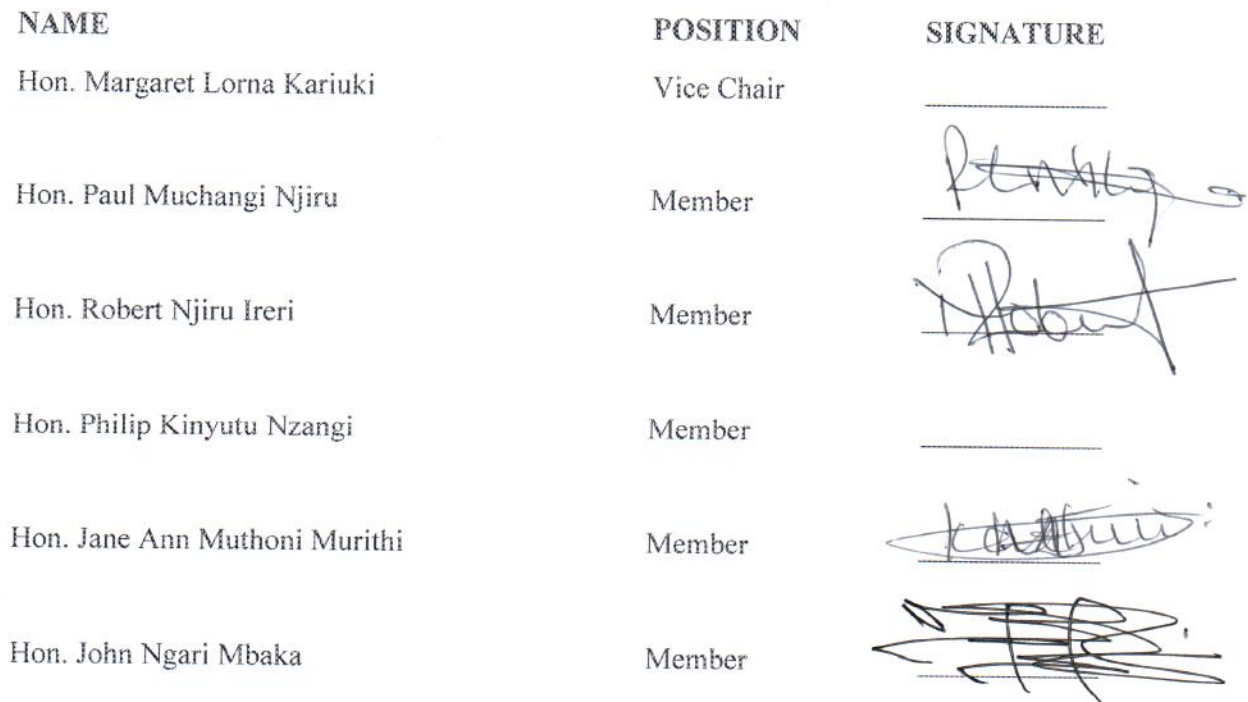 NAME POSITION SIGNATURE
Hon. Margaret Lorna Kariuki Vice Chair
Hon. Paul Muchangi Njiru Member
Hon. Robert Njiru Ireri Member
Hon. Philip Kinyutu Nzangi Member
Hon. Jane Ann Muthoni Murithi Member
Hon. John Ngari Mbaka Member